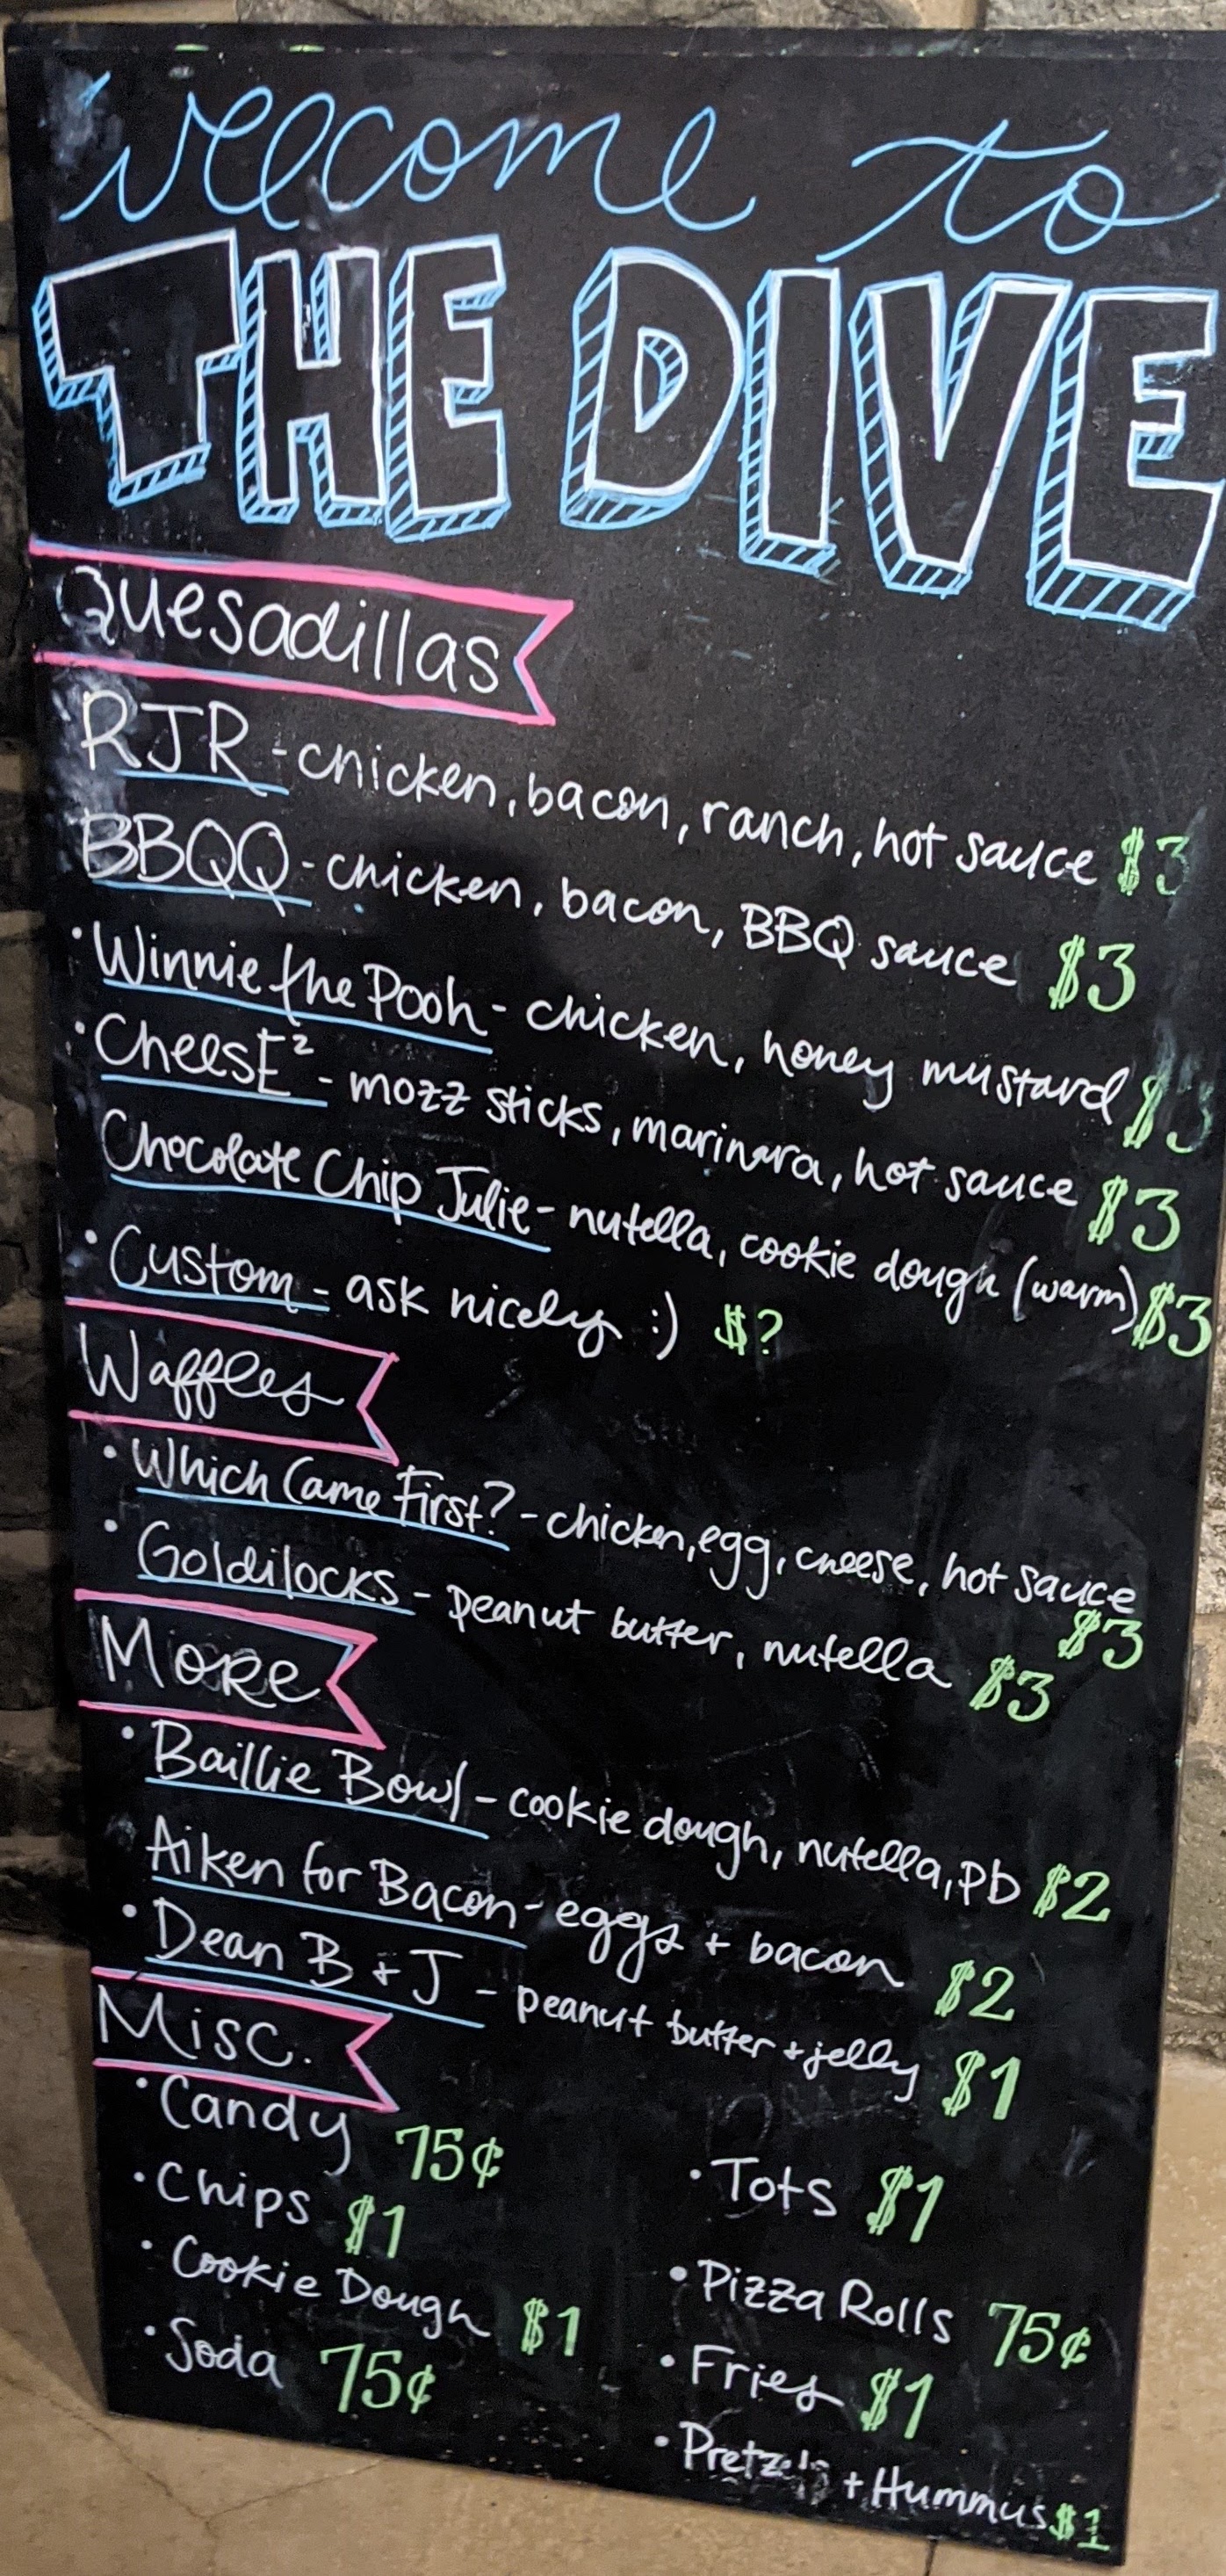 welcome to
THE DIVE
Quesadillas
RJR - chicken, bacon, ranch, hot sauce $3
BBQQ - chicken, bacon, BBQ sauce $3
• Winnie the Pooh - chicken, honey mustard $3
• CheesE² - mozz sticks, marinara, hot sauce $3
Chocolate Chip Julie - nutella, cookie dough (warm) $3
• Custom - ask nicely :) $?
Waffles
• Which Came First? - chicken, egg, cheese, hot sauce
$3
• Goldilocks - peanut butter, nutella $3
More
• Baillie Bowl - cookie dough, nutella, pb $2
Aiken for Bacon - eggs + bacon $2
• Dean B + J - peanut butter + jelly $1
Misc.
• Candy 75¢
• Chips $1
• Cookie Dough $1
• Soda 75¢
• Tots $1
• Pizza Rolls 75¢
• Fries $1
• Pretzels + Hummus $1